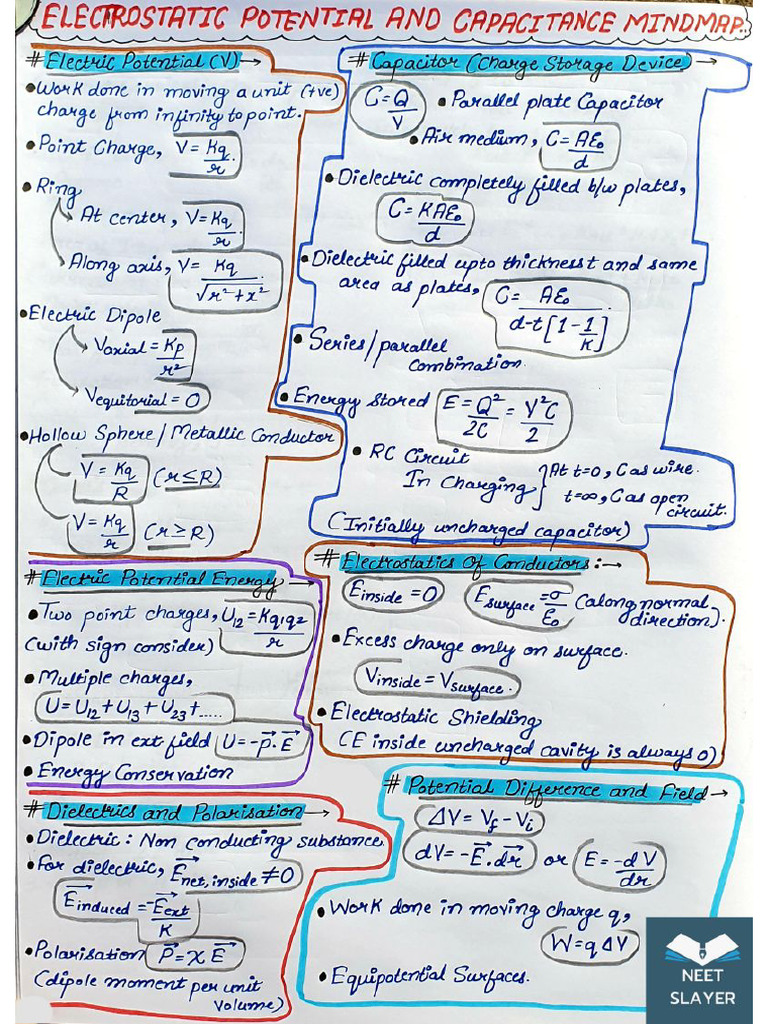 ELECTROSTATIC POTENTIAL AND CAPACITANCE MINDMAP.
# Electric Potential (V) →
• Work done in moving a unit (+ve)
charge from infinity to point.
• Point Charge, V = Kq/r
• Ring
At center, V = Kq/r
Along axis, V = Kq/√r²+x²
• Electric Dipole
Vaxial = Kp/r²
Vequitorial = 0
• Hollow Sphere / Metallic Conductor
V = Kq/R (r ≤ R)
V = Kq/r (r ≥ R)
# Capacitor (Charge Storage Device) →
C = Q/V • Parallel plate Capacitor
• Air medium, C = AƐ₀/d
• Dielectric completely filled b/w plates,
C = KAƐ₀/d
• Dielectric filled upto thickness t and same
area as plates, C = AƐ₀/d-t[1-1/K]
• Series/parallel
combination.
• Energy stored E = Q²/2C = V²C/2
• RC Circuit
In Charging { At t=0, C as wire.
t=∞, C as open
circuit.
(Initially uncharged capacitor)
# Electric Potential Energy →
• Two point charges, U₁₂ = Kq₁q₂/r
(with sign consider)
• Multiple charges,
U = U₁₂ + U₁₃ + U₂₃ + .....
• Dipole in ext field U = -p⃗. E⃗
• Energy Conservation
# Electrostatics Of Conductors :→
Einside = 0 Esurface = σ/Ɛ₀ (along normal
direction).
• Excess charge only on surface.
Vinside = Vsurface.
• Electrostatic Shielding
(E inside uncharged cavity is always 0)
# Dielectrics and Polarisation →
• Dielectric : Non conducting substance
• For dielectric, E⃗net, inside ≠ 0
E⃗induced = E⃗ext/K
• Polarisation P⃗ = χ E⃗
(dipole moment per unit
volume)
# Potential Difference and Field →
ΔV = Vf - Vi
dV = -E⃗. dr⃗ or E = -dV/dr
• Work done in moving charge q,
W = q ΔV
• Equipotential Surfaces.
NEET
SLAYER